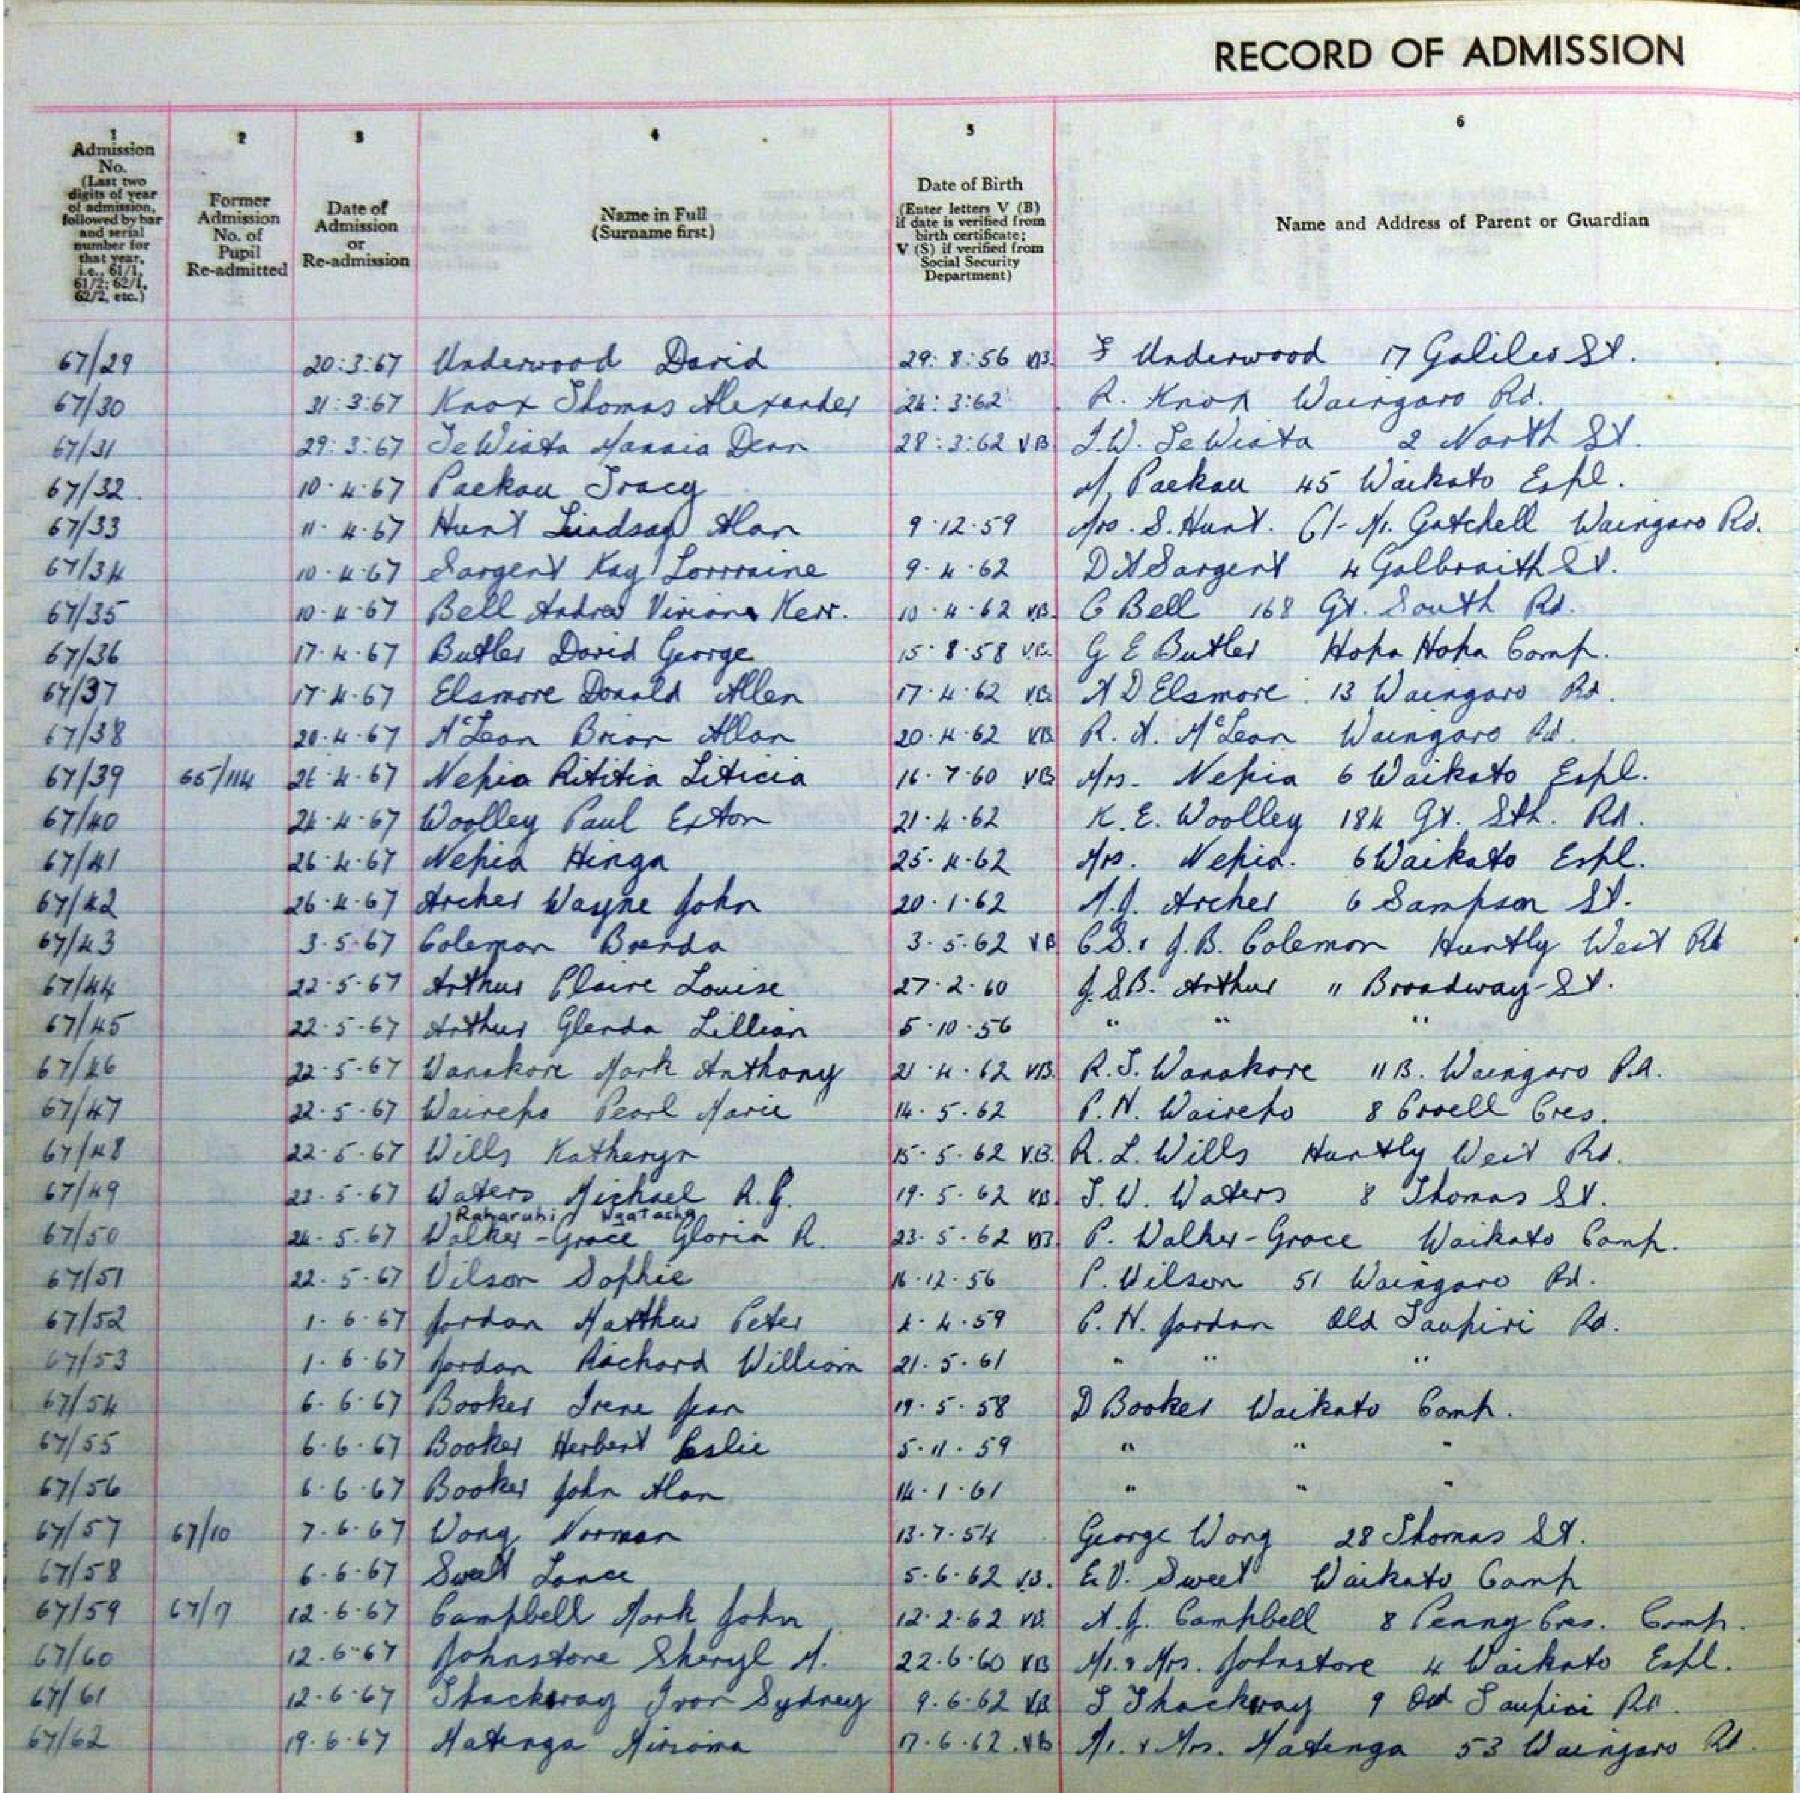 RECORD OF ADMISSION
1 2 3 4 5 6
Admission No. (Last two digits of year of admission, followed by bar and serial number for that year, i.e., 61/1, 61/2; 62/1, 62/2, etc.)
Former Admission No. of Pupil Re-admitted
Date of Admission or Re-admission
Name in Full (Surname first)
Date of Birth (Enter letters V (B) if date is verified from birth certificate; V (S) if verified from Social Security Department)
Name and Address of Parent or Guardian
67/29 20:3:67 Underwood David 29:8:56 VB. Underwood 17 Galileo St.
67/30 31:3:67 Knox Thomas Alexander 24:3:62 R. Knox Waingaro Rd.
67/31 29:3:67 TeWiata Dean 28:3:62 V.B. T.W. TeWiata 2 North St.
67/32 10.4.67 Paekau Tracy M. Paekau 45 Waikato Espl.
67/33 11.4.67 Hunt Lindsay Alan 9.12.59 Mrs. S. Hunt. C/- Mr. Gatchell Waingaro Rd.
67/34 10.4.67 Sargent Kay Lorrraine 9.4.62 D A Sargent 4 Galbraith St.
67/35 10.4.67 Bell Andrew Kerr. 10.4.62 V.B. C Bell 168 Gt. South Rd.
67/36 17.4.67 Butler David George 15.8.58 V.B. G E Butler Hopa Hopa Camp.
67/37 17.4.67 Elsmore Donald Allen 17.4.62 V.B. A D Elsmore 13 Waingaro Rd.
67/38 20.4.67 McLean Brian Allan 20.4.62 VB R. A. McLean Waingaro Rd.
67/39 65/114 26.4.67 Nepia Rititia Liticia 16.7.60 VB Mrs. Nepia 6 Waikato Espl.
67/40 24.4.67 Woolley Paul Exton 21.4.62 K. E. Woolley 184 Gt. Sth. Rd.
67/41 26.4.67 Nepia Hinga 25.4.62 Mrs. Nepia. 6 Waikato Espl.
67/42 26.4.67 Archer Wayne John 20.1.62 A.J. Archer 6 Sampson St.
67/43 3.5.67 Coleman Brenda 3.5.62 VB C.S. & J.B. Coleman Huntly West Rd
67/44 22.5.67 Arthur Claire Louise 27.2.60 J.S.B. Arthur 11 Broadway St.
67/45 22.5.67 Arthur Glenda Lillian 5.10.56 " " "
67/46 22.5.67 Wanakore Mark Anthony 21.4.62 VB. R.T. Wanakore 11B. Waingaro Rd.
67/47 22.5.67 Wairepo Pearl Marie 14.5.62 P.H. Wairepo 8 Croell Cres.
67/48 22.5.67 Wills Katheryn 15.5.62 V.B. R.L. Wills Huntly West Rd.
67/49 23.5.67 Waters Michael R.G. 19.5.62 VB. T.W. Waters 8 Thomas St.
Raharuhi Ngatasha
67/50 24.5.67 Walker-Grace Gloria R. 23.5.62 VB. P. Walker-Grace Waikato Camp.
67/51 22.5.67 Wilson Sophie 16.12.56 P. Wilson 51 Waingaro Rd.
67/52 1.6.67 Jordan Matthew Peter 4.4.59 P. H. Jordan Old Taupiri Rd.
67/53 1.6.67 Jordan Richard William 21.5.61 " " "
67/54 6.6.67 Booker Irene Jean 19.5.58 D Booker Waikato Camp.
67/55 6.6.67 Booker Herbert Leslie 5.11.59 " " "
67/56 6.6.67 Booker John Alan 14.1.61 " " "
67/57 67/10 7.6.67 Wong Norman 13.7.54 George Wong 28 Thomas St.
67/58 6.6.67 Sweet Lance 5.6.62 V.B. E.V. Sweet Waikato Camp
67/59 67/7 12.6.67 Campbell Mark John 12.2.62 VB. A.J. Campbell 8 Penny Cres. Camp.
67/60 12.6.67 Johnstone Sheryl M. 22.6.60 VB Mr. & Mrs. Johnstone 4 Waikato Espl.
67/61 12.6.67 Thackwray Ivor Sydney 9.6.62 VB Thackwray 9 Old Taupiri Rd.
67/62 19.6.67 Matenga Miriama 17.6.62 VB Mr. & Mrs. Matenga 53 Waingaro Rd.